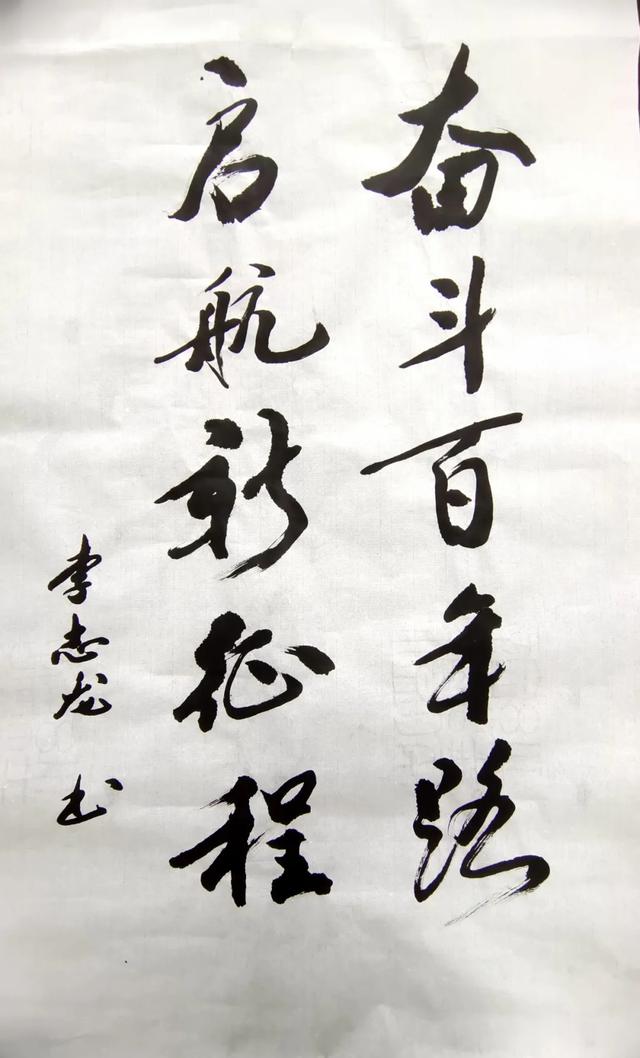 奋斗百年路
启航新征程
李志龙 书